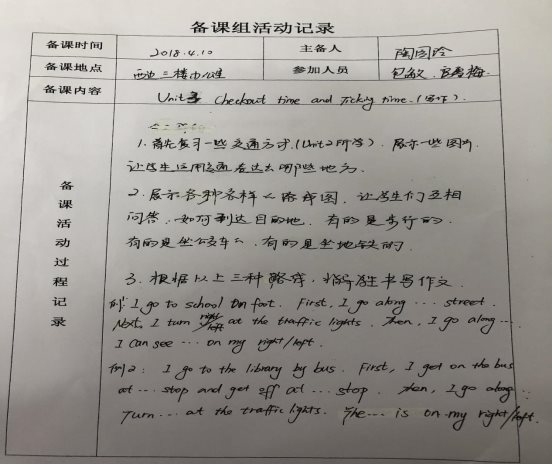 备课组活动记录
备课时间 2018.4.10 主备人 陶园玲
备课地点 西边三楼办公室 参加人员 包敏,
备课内容 Unit3 Checkout time and Ticking time.(写作).
备课活动过程记录
1. 首先复习一些交通方式.(Unit2所学). 展示一些图片
让学生运用交通方式去哪些地方.
2. 展示各种各样 路线图. 让学生们互相
问答. 如何到达目的地. 有的是步行的.
有的是坐公交车的. 有的是坐地铁的.
3. 根据以上三种路线, 指导学生书写作文.
例1: I go to school on foot. First, I go along ... street.
Next, I turn right/left at the traffic lights. Then, I go along...
I can see ... on my right/left.
例2: I go to the library by bus. First, I get on the bus
at ... stop and get off at ... stop. Then, I go along...
Turn... at the traffic lights. The... is on my right/left.